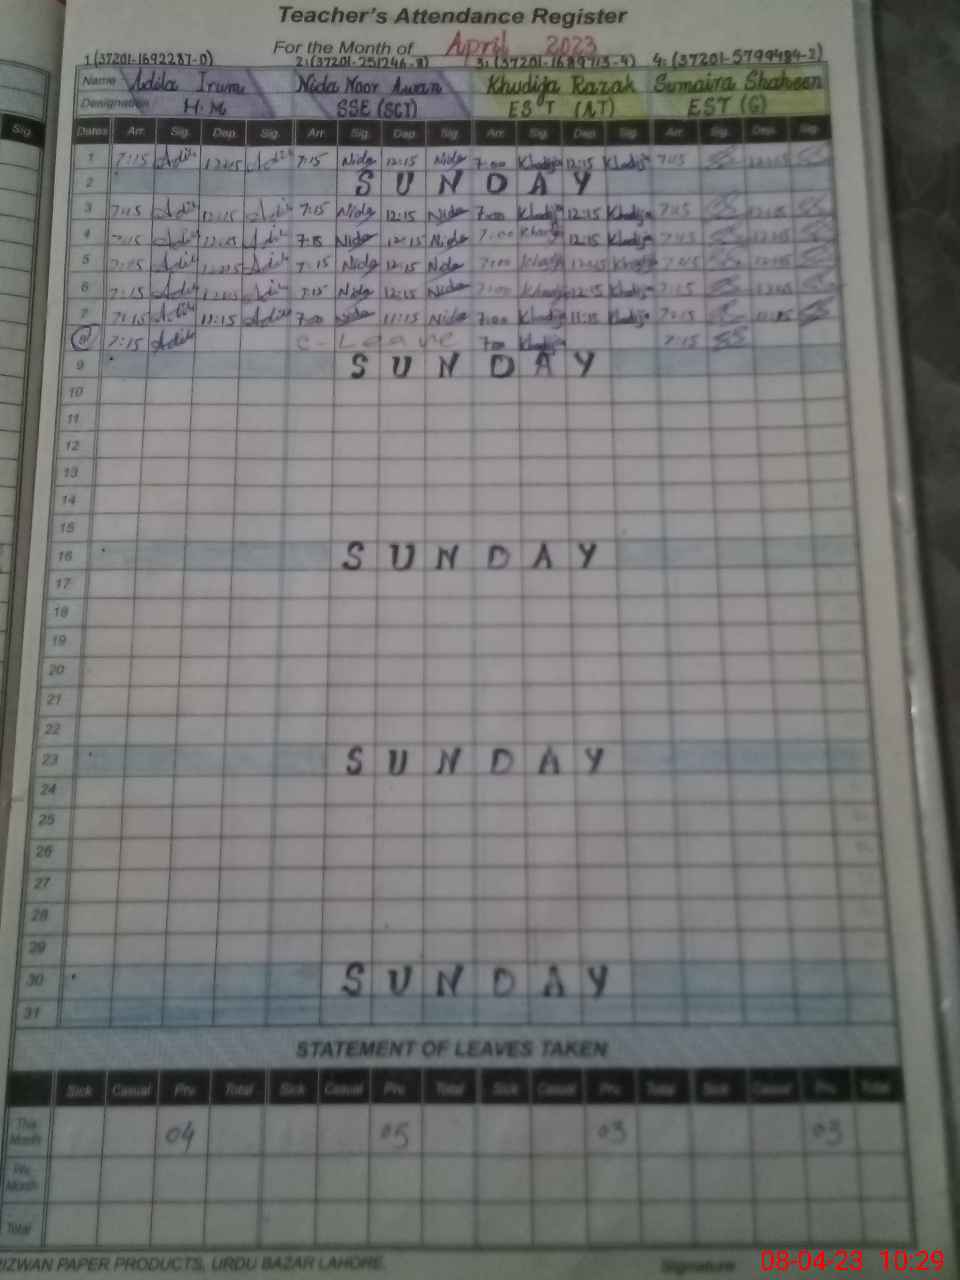 Teacher's Attendance Register
For the Month of April 2023
1(37201-1692287-0) 2:(37201-251246-8) 3:(37201-1689713-4) 4:(37201-5799484-2)
Name Adila Irum Nida Noor Awan Khudija Razak Sumaira Shaheen
Designation H.M SSE(SCI) EST (AT) EST (G)
Sig.
Dates Arr. Sig. Dep. Sig. Arr. Sig. Dep. Sig. Arr. Sig. Dep. Sig. Arr. Sig. Dep. Sig.
1 7:15 Adila 12:15 Adila 7:15 Nida 12:15 Nida 7:00 Khudija 12:15 Khudija 7:15 SS 12:15 SS
2 SUNDAY
3 7:15 Adila 12:15 Adila 7:15 Nida 12:15 Nida 7:00 Khudija 12:15 Khudija 7:15 SS 12:15 SS
4 7:15 Adila 12:15 Adila 7:15 Nida 12:15 Nida 7:00 Khudija 12:15 Khudija 7:15 SS 12:15 SS
5 7:15 Adila 12:15 Adila 7:15 Nida 12:15 Nida 7:00 Khudija 12:15 Khudija 7:15 SS 12:15 SS
6 7:15 Adila 12:15 Adila 7:15 Nida 12:15 Nida 7:00 Khudija 12:15 Khudija 7:15 SS 12:15 SS
7 7:15 Adila 11:15 Adila 7:00 Nida 11:15 Nida 7:00 Khudija 11:15 Khudija 7:15 SS 11:15 SS
8 7:15 Adila C-Leave 7:00 Khudija 7:15 SS
9 SUNDAY
10
11
12
13
14
15
16 SUNDAY
17
18
19
20
21
22
23 SUNDAY
24
25
26
27
28
29
30 SUNDAY
31
STATEMENT OF LEAVES TAKEN
Sick Casual Prv. Total Sick Casual Prv. Total Sick Casual Prv. Total Sick Casual Prv. Total
This Month 04 05 03 03
Prv. Month
Total
RIZWAN PAPER PRODUCTS, URDU BAZAR LAHORE. Signature
08-04-23 10:29